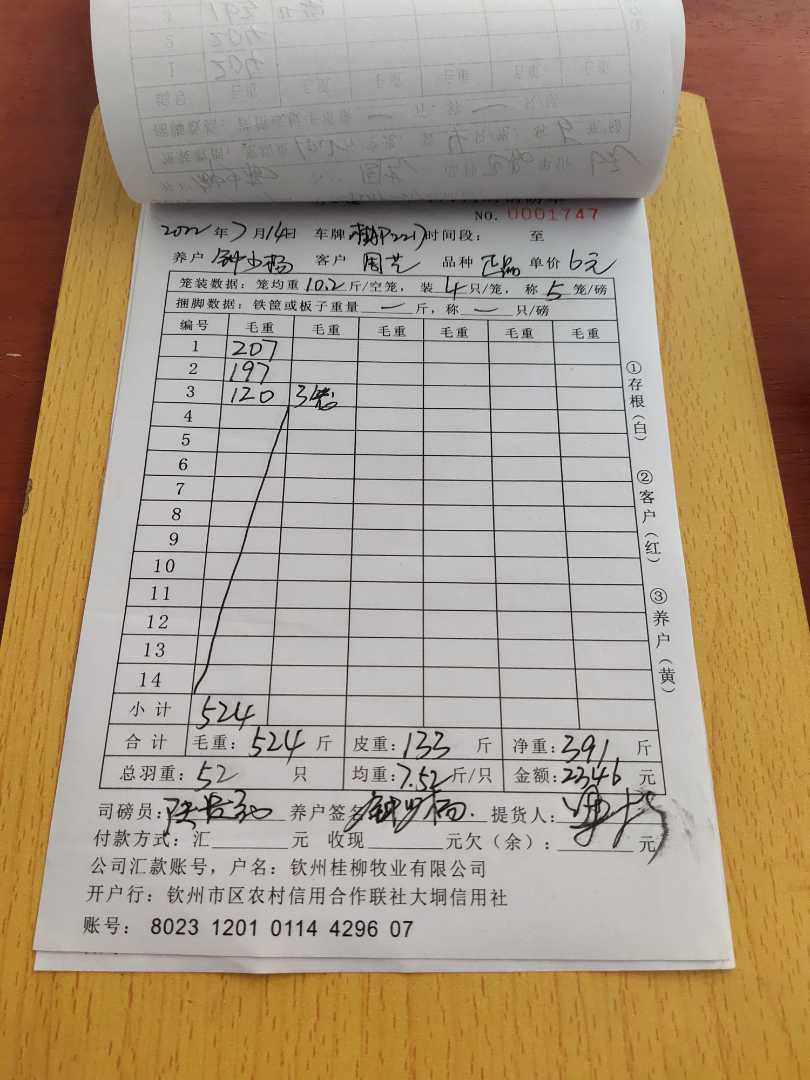 NO. 0001747
2022年7月14日 车牌 时间段: 至
养户 钟少杨 客户 周芝 品种 正品 单价 6元
笼装数据: 笼均重10.2斤/空笼, 装4只/笼, 称5笼/磅
捆脚数据: 铁筐或板子重量一斤, 称一只/磅
编号 毛重 毛重 毛重 毛重 毛重 毛重
1 207
2 197
3 120 3笼
4
5
6
7
8
9
10
11
12
13
14
小计 524
合计 毛重: 524 斤 皮重: 133 斤 净重: 391 斤
总羽重: 52 只 均重: 7.52 斤/只 金额: 2346 元
司磅员: 养户签名 提货人:
付款方式: 汇____元 收现____元欠(余): ____元
公司汇款账号, 户名: 钦州桂柳牧业有限公司
开户行: 钦州市区农村信用合作联社大垌信用社
账号: 8023 1201 0114 4296 07
①存根(白) ②客户(红) ③养户(黄)